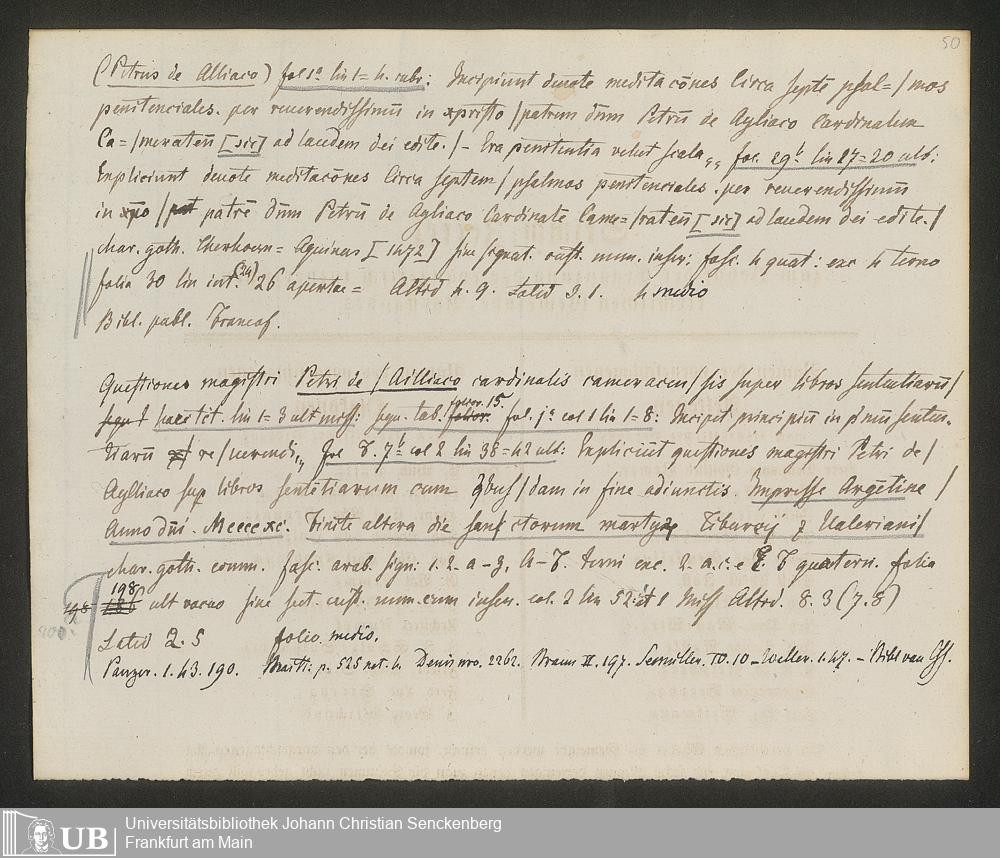 50
(Petrus de Alliaco) fol 1ᵃ lin 1= 4. rubr: Incipiunt deuote meditacōnes Circa septē psal=/mos
penitenciales. per reuerendissimū in xpristo /patrem dnm Petrū de Ayliaco Cardinalem
Ca=/meratēn [sic] ad laudem dei edite. /– Era penitentia velut scala,, fol. 29ᵇ lin 17=20 ult:
Expliciunt deuote meditacōnes Circa septem / psalmos penitenciales . per reuerendissimum
in xpo / pat patrē dnm Petrū de Ayliaco Cardinale Came=/ratēn [sic] ad laudem dei edite. /
char. goth. Therhoern= Aquinas [1472] sine signat. cust. num. inser: fasc. 4 quat: exc 4 terno
folia 30 lin int. (24) 26 apertae= Altid 4. 9. Latid 3. 1. 4 medio
Bibl. publ. Francof.
Questiones magistri Petri de / Ailliaco cardinalis cameracen/sis super libros sententiarū /
haec tit. lin 1=3 ult miss: sequ. tab. folior. folior. 15. fol. jᵃ col 1 lin 1=8: Incipit principiū in pmū senten.
tiarū re/uerendi,, fol T. 7ᵇ col 2 lin 38=42 ult: Expliciūt questiones magistri Petri de /
Aylliaco sup libros sentētiarum cum qbus/dam in fine adiunctis. Impresse Argētine /
Anno dni. Mccccxc. Finite altera die sanctorum martyrȝ Tiburcij ⁊ Valeriani/
char. goth. comm. fasc. arab. sign: 1. 2. a–z, A–T. terni exc. 2. a. c. e T quatern. folia
198 ult vacuo sine sect. cust. num. cum inser. col. 2 lin 52: et 1 Miss Altid. 8. 3 (7. 8)
Latid 2. 5 folio medio.
Panzer. 1. 43. 190. Maitt: p. 525 not. 4. Denis nro. 2262. Braun II. 197. Seemiller. IV. 10 – Weller. 1. 47. –
UB
Universitätsbibliothek Johann Christian Senckenberg
Frankfurt am Main